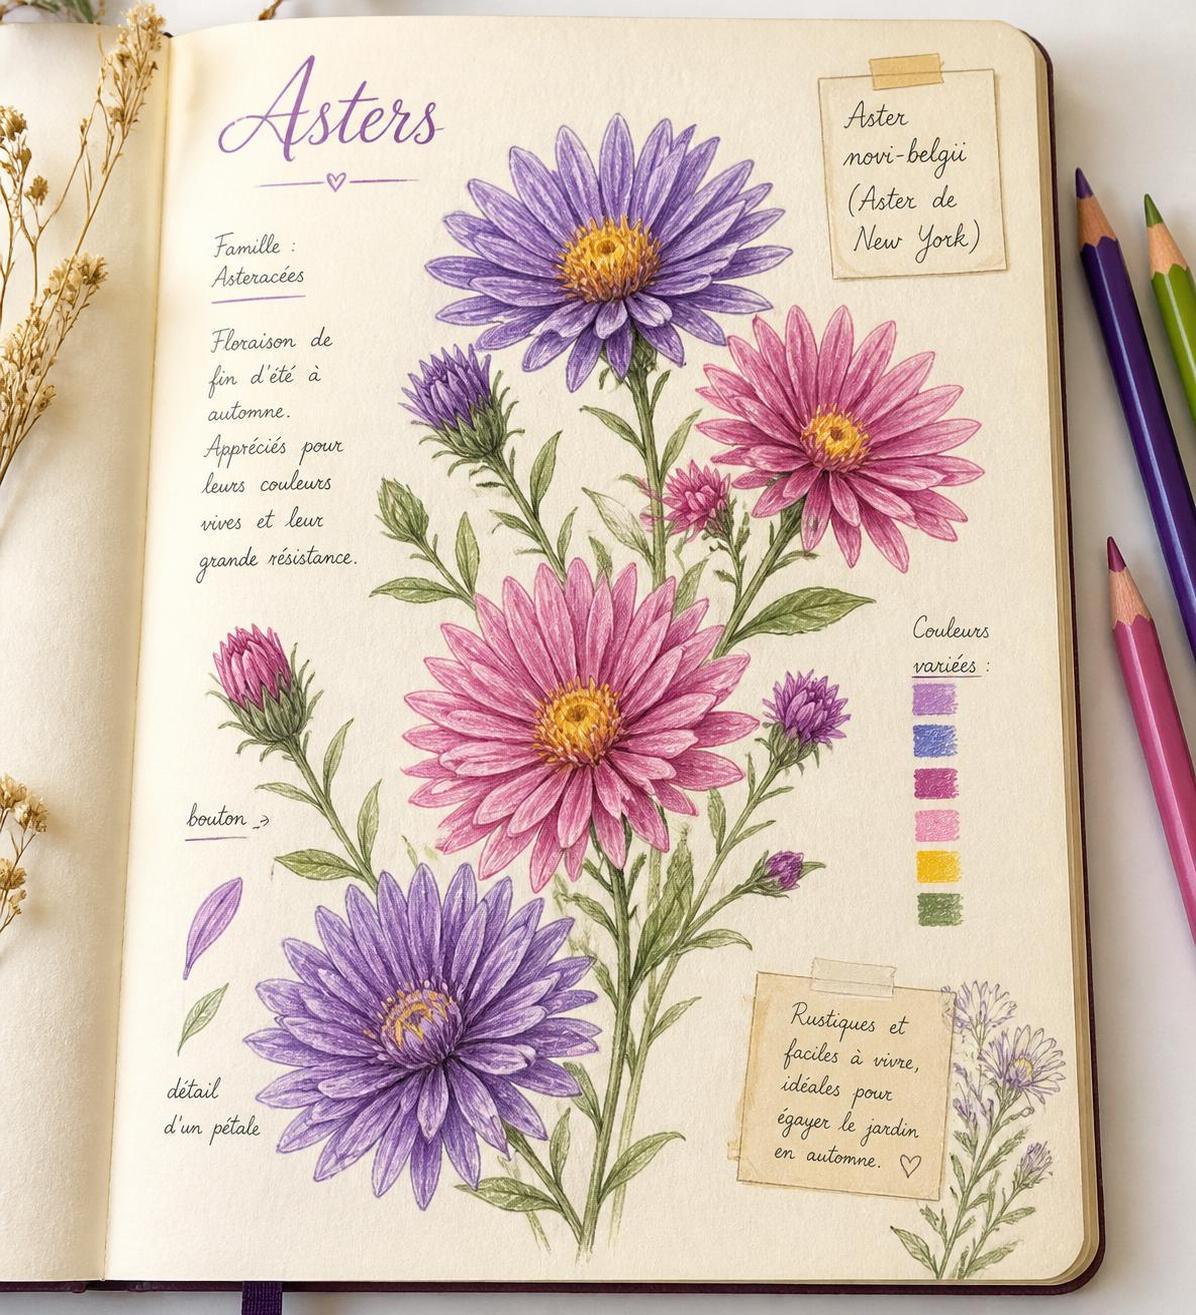 Asters
Aster
novi-belgii
(Aster de
New York)
Famille :
Asteracées
Floraison de
fin d'été à
automne.
Appréciés pour
leurs couleurs
vives et leur
grande résistance.
Couleurs
variées :
bouton →
détail
d'un pétale
Rustiques et
faciles à vivre,
idéales pour
égayer le jardin
en automne. ♡